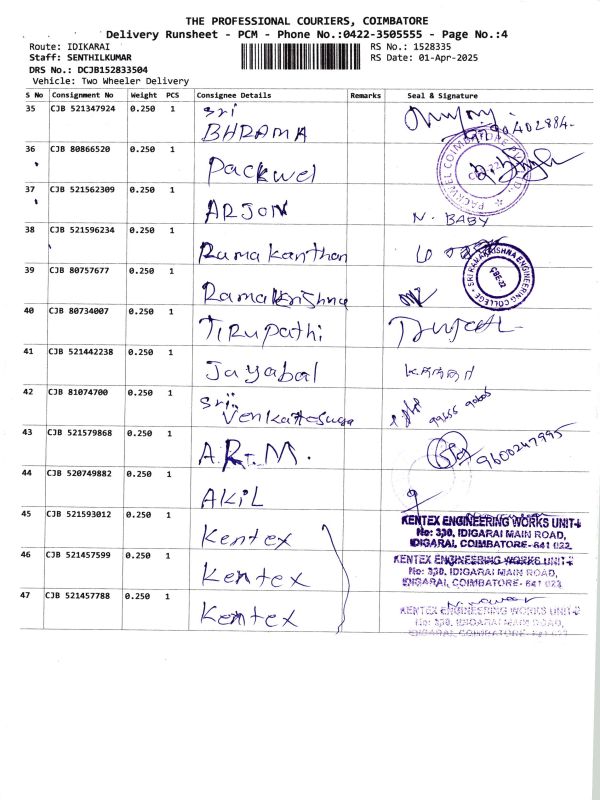 THE PROFESSIONAL COURIERS, COIMBATORE
Delivery Runsheet - PCM - Phone No.:0422-3505555 - Page No.:4
Route: IDIKARAI RS No.: 1528335
Staff: SENTHILKUMAR RS Date: 01-Apr-2025
DRS No.: DCJB152833504
Vehicle: Two Wheeler Delivery
S No Consignment No Weight PCS Consignee Details Remarks Seal & Signature
35 CJB 521347924 0.250 1 Sri
BHRAMA
36 CJB 80866520 0.250 1 Packwel
PACKWEL COIMBATORE
37 CJB 521562309 0.250 1 ARJON N. BABY
38 CJB 521596234 0.250 1 Ramakanthan
39 CJB 80757677 0.250 1 Ramakrishna
SRI RAMAKRISHNA ENGINEERING COLLEGE
CBE-22
40 CJB 80734007 0.250 1 Tirupathi
41 CJB 521442238 0.250 1 Jayabal
42 CJB 81074700 0.250 1 Sri
43 CJB 521579868 0.250 1 A.R.M. 9600247995
44 CJB 520749882 0.250 1 AKiL
45 CJB 521593012 0.250 1 Kentex
KENTEX ENGINEERING WORKS UNIT-I
No: 330, IDIGARAI MAIN ROAD,
IDIGARAI, COIMBATORE- 641 022.
46 CJB 521457599 0.250 1 Kentex
KENTEX ENGINEERING WORKS UNIT-I
No: 330, IDIGARAI MAIN ROAD,
IDIGARAI, COIMBATORE- 641 022.
47 CJB 521457788 0.250 1 Kentex
KENTEX ENGINEERING WORKS UNIT-I
No: 330, IDIGARAI MAIN ROAD,
IDIGARAI, COIMBATORE- 641 022.